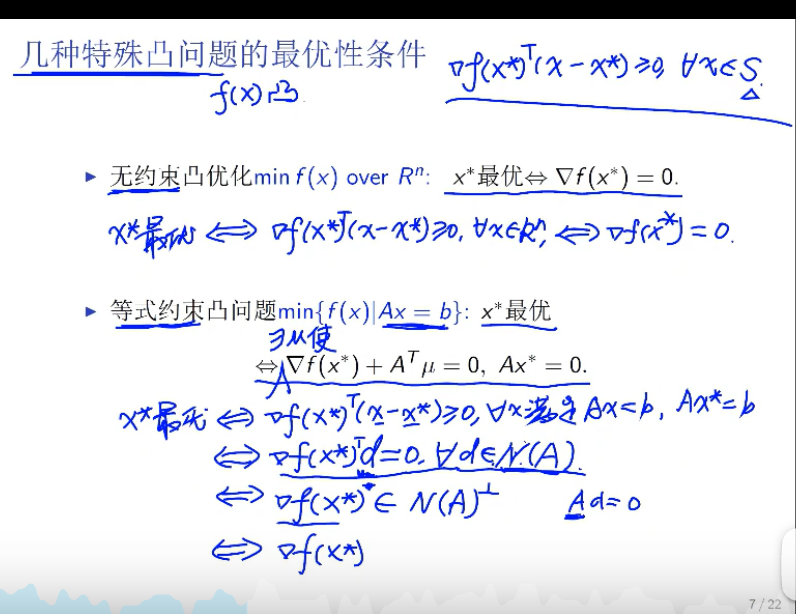 几种特殊凸问题的最优性条件
∇f(x*)ᵀ(x-x*)≥0, ∀x∈S.
f(x)凸
▶ 无约束凸优化min f(x) over Rⁿ: x*最优⇔ ∇f(x*) = 0.
x*最优 ⇔ ∇f(x*)ᵀ(x-x*)≥0, ∀x∈Rⁿ, ⇔ ∇f(x*)=0.
▶ 等式约束凸问题min{f(x)|Ax = b}: x*最优
∃μ使
⇔ ∇f(x*) + Aᵀμ = 0, Ax* = 0.
x*最优 ⇔ ∇f(x*)ᵀ(x-x*)≥0, ∀x满足Ax=b, Ax*=b
⇔ ∇f(x*)ᵀd=0, ∀d∈N(A).
⇔ ∇f(x*) ∈ N(A)⊥ Ad=0
⇔ ∇f(x*)
7 / 22